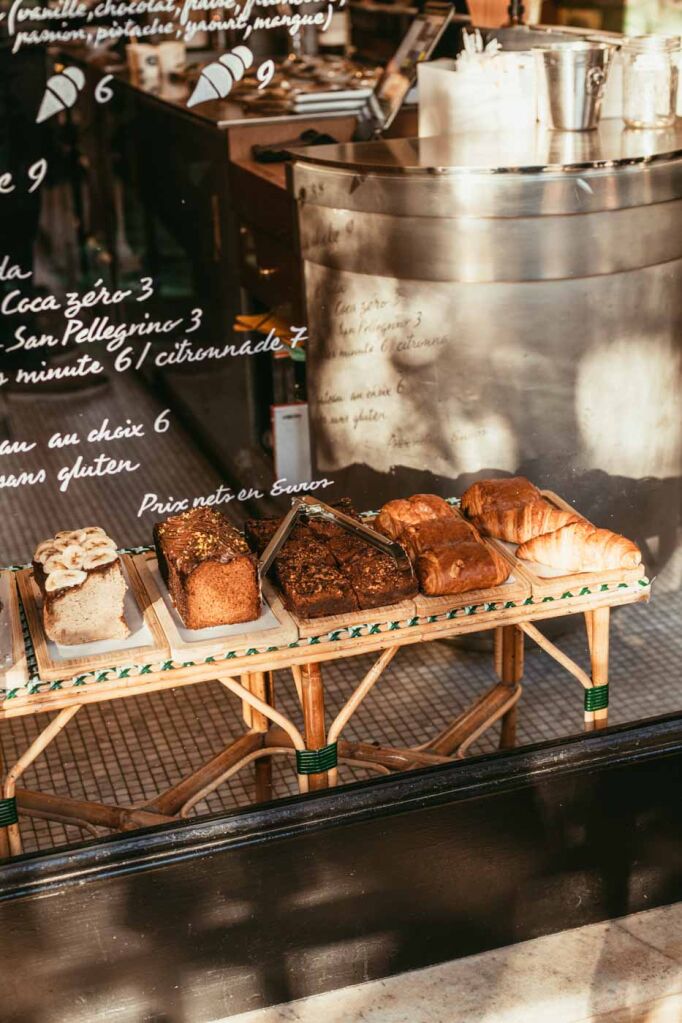 (vanille, chocolat, fraise, framboise,
passion, pistache, yaourt, mangue)
6 9
9
Coca zéro 3
San Pellegrino 3
minute 6/ citronnade 7
au choix 6
sans gluten
Prix nets en Euros